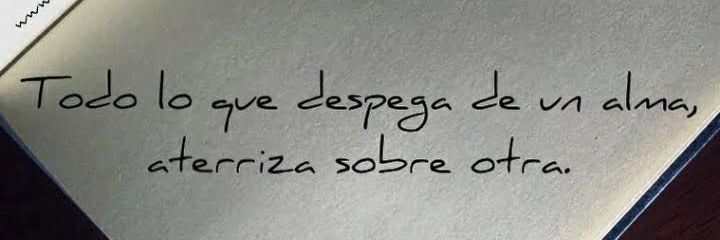 Todo lo que despega de un alma,
aterriza sobre otra.